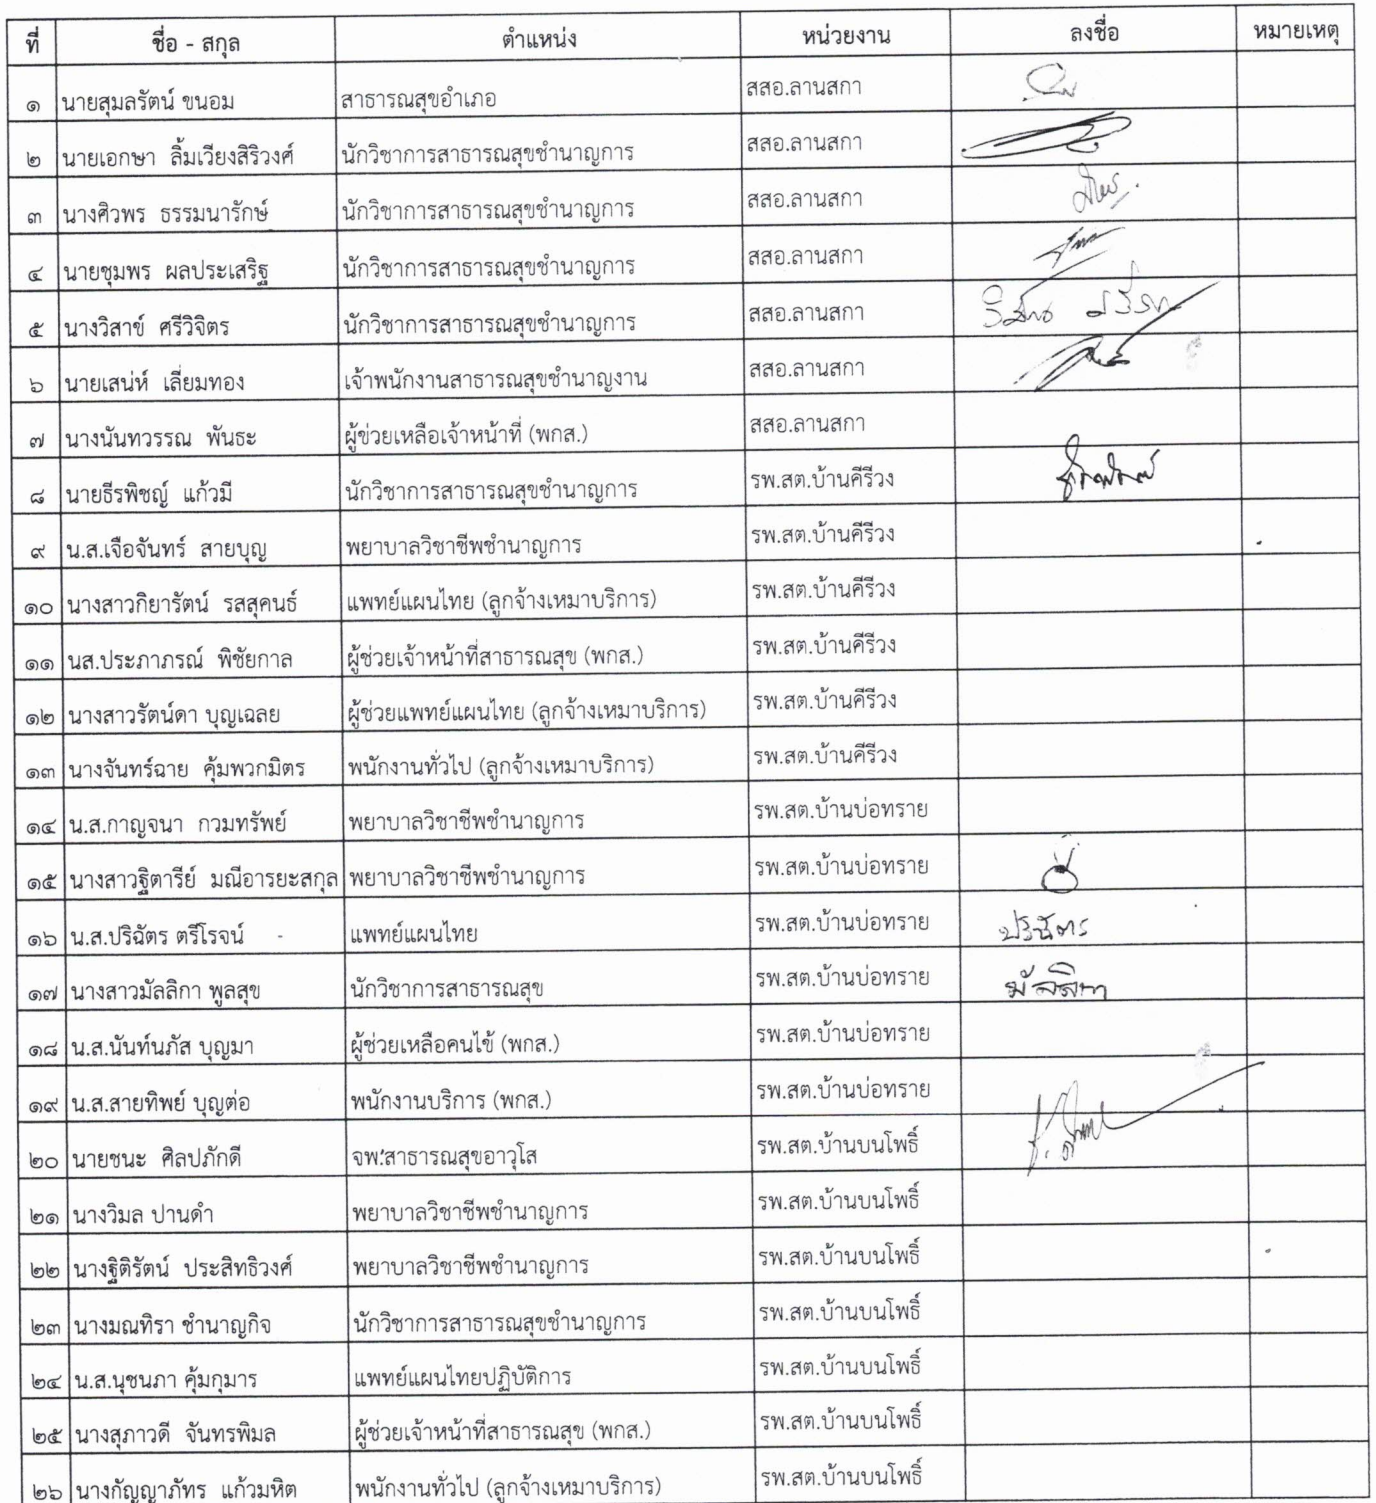 ที่ ชื่อ - สกุล ตำแหน่ง หน่วยงาน ลงชื่อ หมายเหตุ
๑ นายสุมลรัตน์ ขนอม สาธารณสุขอำเภอ สสอ.ลานสกา
๒ นายเอกษา ลิ้มเวียงสิริวงศ์ นักวิชาการสาธารณสุขชำนาญการ สสอ.ลานสกา
๓ นางศิวพร ธรรมนารักษ์ นักวิชาการสาธารณสุขชำนาญการ สสอ.ลานสกา
๔ นายชุมพร ผลประเสริฐ นักวิชาการสาธารณสุขชำนาญการ สสอ.ลานสกา
๕ นางวิสาข์ ศรีวิจิตร นักวิชาการสาธารณสุขชำนาญการ สสอ.ลานสกา
๖ นายเสน่ห์ เลี่ยมทอง เจ้าพนักงานสาธารณสุขชำนาญงาน สสอ.ลานสกา
๗ นางนันทวรรณ พันธะ ผู้ช่วยเหลือเจ้าหน้าที่ (พกส.) สสอ.ลานสกา
๘ นายธีรพิชญ์ แก้วมี นักวิชาการสาธารณสุขชำนาญการ รพ.สต.บ้านคีรีวง
๙ น.ส.เจือจันทร์ สายบุญ พยาบาลวิชาชีพชำนาญการ รพ.สต.บ้านคีรีวง
๑๐ นางสาวกิยารัตน์ รสสุคนธ์ แพทย์แผนไทย (ลูกจ้างเหมาบริการ) รพ.สต.บ้านคีรีวง
๑๑ นส.ประภาภรณ์ พิชัยกาล ผู้ช่วยเจ้าหน้าที่สาธารณสุข (พกส.) รพ.สต.บ้านคีรีวง
๑๒ นางสาวรัตน์ดา บุญเฉลย ผู้ช่วยแพทย์แผนไทย (ลูกจ้างเหมาบริการ) รพ.สต.บ้านคีรีวง
๑๓ นางจันทร์ฉาย คุ้มพวกมิตร พนักงานทั่วไป (ลูกจ้างเหมาบริการ) รพ.สต.บ้านคีรีวง
๑๔ น.ส.กาญจนา กวมทรัพย์ พยาบาลวิชาชีพชำนาญการ รพ.สต.บ้านบ่อทราย
๑๕ นางสาวฐิตารีย์ มณีอารยะสกุล พยาบาลวิชาชีพชำนาญการ รพ.สต.บ้านบ่อทราย
๑๖ น.ส.ปริฉัตร ตรีโรจน์ - แพทย์แผนไทย รพ.สต.บ้านบ่อทราย ปริฉัตร
๑๗ นางสาวมัลลิกา พูลสุข นักวิชาการสาธารณสุข รพ.สต.บ้านบ่อทราย มัลลิกา
๑๘ น.ส.นันท์นภัส บุญมา ผู้ช่วยเหลือคนไข้ (พกส.) รพ.สต.บ้านบ่อทราย
๑๙ น.ส.สายทิพย์ บุญต่อ พนักงานบริการ (พกส.) รพ.สต.บ้านบ่อทราย
๒๐ นายชนะ ศิลปภักดี จพ.สาธารณสุขอาวุโส รพ.สต.บ้านบนโพธิ์
๒๑ นางวิมล ปานดำ พยาบาลวิชาชีพชำนาญการ รพ.สต.บ้านบนโพธิ์
๒๒ นางฐิติรัตน์ ประสิทธิวงศ์ พยาบาลวิชาชีพชำนาญการ รพ.สต.บ้านบนโพธิ์
๒๓ นางมณทิรา ชำนาญกิจ นักวิชาการสาธารณสุขชำนาญการ รพ.สต.บ้านบนโพธิ์
๒๔ น.ส.นุชนภา คุ้มกุมาร แพทย์แผนไทยปฏิบัติการ รพ.สต.บ้านบนโพธิ์
๒๕ นางสุภาวดี จันทรพิมล ผู้ช่วยเจ้าหน้าที่สาธารณสุข (พกส.) รพ.สต.บ้านบนโพธิ์
๒๖ นางกัญญาภัทร แก้วมหิต พนักงานทั่วไป (ลูกจ้างเหมาบริการ) รพ.สต.บ้านบนโพธิ์